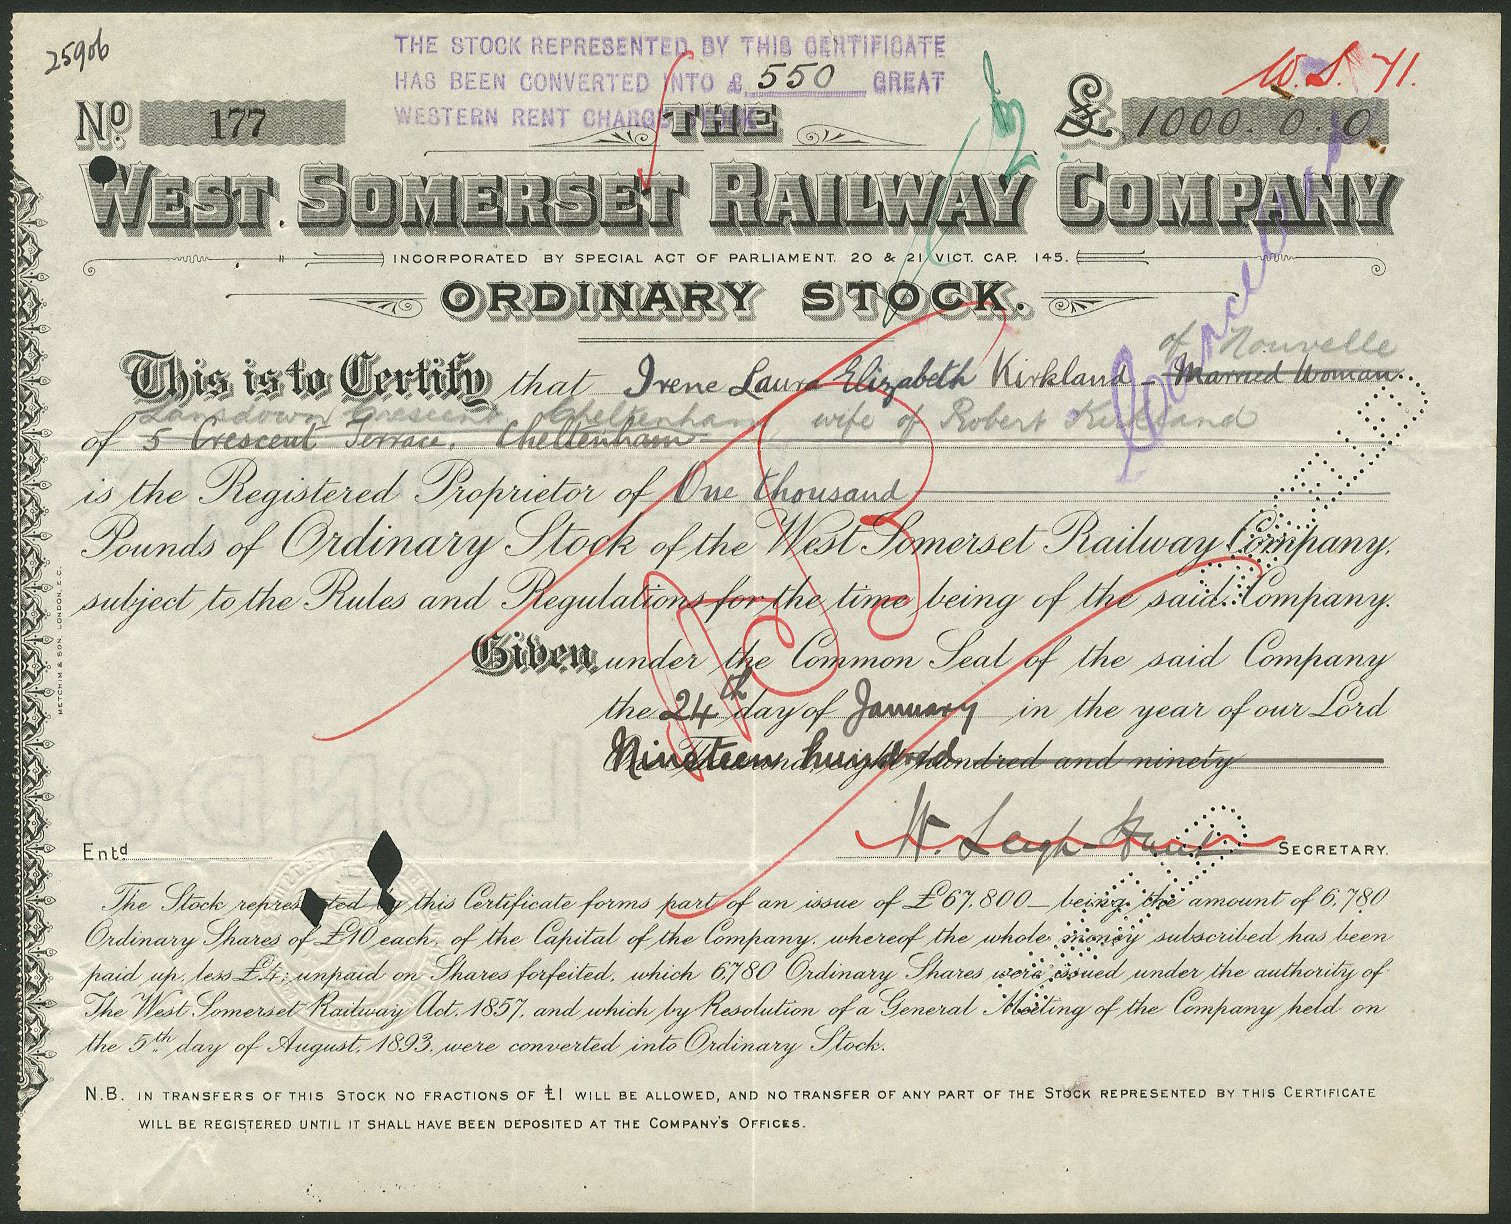 25906
THE STOCK REPRESENTED BY THIS CERTIFICATE
HAS BEEN CONVERTED INTO £ 550 GREAT
WESTERN RENT CHARGE STOCK
W.S. 71.
No 177
£ 1000. 0. 0.
THE
WEST SOMERSET RAILWAY COMPANY
INCORPORATED BY SPECIAL ACT OF PARLIAMENT. 20 & 21 VICT. CAP. 145.
ORDINARY STOCK.
Cancelled
of Nouvelle
This is to Certify that Irene Laura Elizabeth Kirkland - Married Woman.
Lansdown Crescent, Cheltenham, wife of Robert Kirkland
of 5 Crescent Terrace, Cheltenham
is the Registered Proprietor of One thousand
Pounds of Ordinary Stock of the West Somerset Railway Company,
subject to the Rules and Regulations for the time being of the said Company.
Given under the Common Seal of the said Company
the 24th day of January in the year of our Lord
Nineteen hundred
One Thousand eight hundred and ninety
W. Leigh-Hunt SECRETARY.
Entd
The Stock represented by this Certificate forms part of an issue of £67,800 being the amount of 6,780
Ordinary Shares of £10 each, of the Capital of the Company, whereof the whole money subscribed has been
paid up, less £4, unpaid on Shares forfeited, which 6,780 Ordinary Shares were issued under the authority of
The West Somerset Railway Act, 1857, and which by Resolution of a General Meeting of the Company held on
the 5th day of August, 1893, were converted into Ordinary Stock.
N.B. IN TRANSFERS OF THIS STOCK NO FRACTIONS OF £1 WILL BE ALLOWED, AND NO TRANSFER OF ANY PART OF THE STOCK REPRESENTED BY THIS CERTIFICATE
WILL BE REGISTERED UNTIL IT SHALL HAVE BEEN DEPOSITED AT THE COMPANY'S OFFICES.
METCHIM & SON. LONDON. E.C.